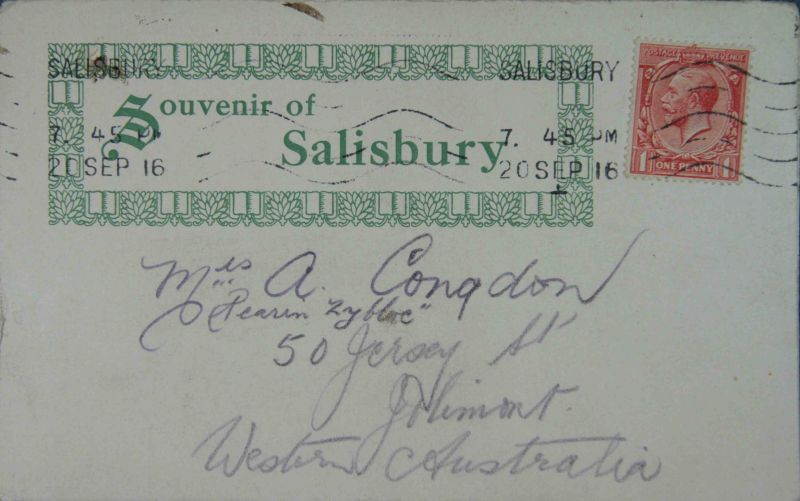 SALISBURY
7. 45 PM
20 SEP 16
Souvenir of
Salisbury
SALISBURY
7. 45 PM
20 SEP 16
POSTAGE REVENUE
1 ONE PENNY 1
Mrs A. Congdon
50 Jersey St
Jolimont.
Western Australia